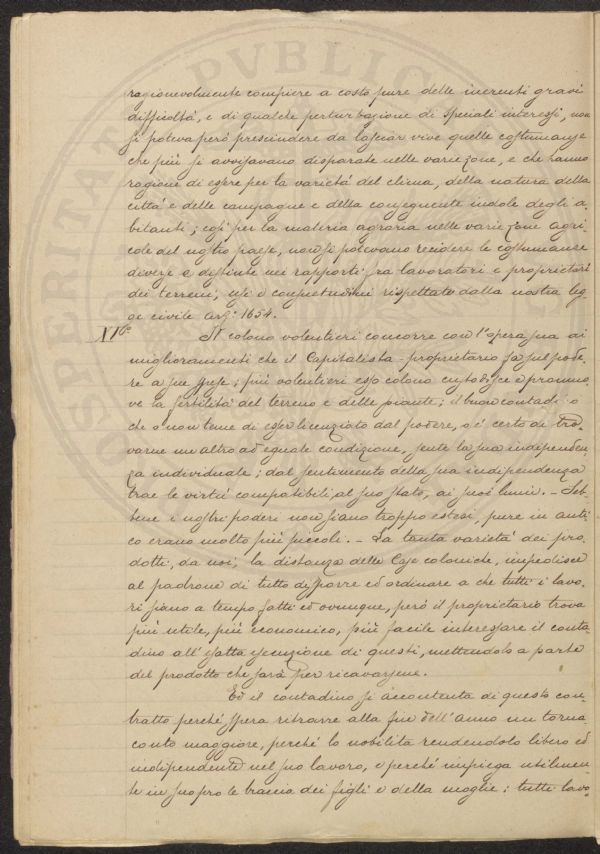 ragionevolmente compiere a costo pure delle inerenti gravi
difficoltà, e di qualche perturbazione di speciali interessi, non
si poteva però prescindere da lasciar vive quelle costumanze
che più si avvisavano disparate nelle varie zone, e che hanno
ragione di essere per la varietà del clima, della natura della
città e delle campagne e della conseguente indole degli a-
bitanti; così per la materia agraria nelle varie zone agri-
cole del nostro paese, non si potevano recidere le costumanze
diverse e distinte nei rapporti fra lavoratori e proprietari
dei terreni, usi e consuetudini rispettate dalla nostra leg-
ge civile art.° 1654.
XI°
Il colono volentieri concorre con l'opera sua ai
miglioramenti che il Capitalista-proprietario fa sul pode-
re a sue spese; più volentieri esso colono custodisce e promuo-
ve la fertilità del terreno e delle piante; il buon contadino
che o non teme di esser licenziato dal podere, o è certo di tro-
varne un altro ad eguale condizione, sente la sua indipenden-
za individuale; dal sentimento della sua indipendenza
trae le virtù compatibili al suo stato, ai suoi lumi. - Seb-
bene i nostri poderi non siano troppo estesi, pure in anti-
co erano molto più piccoli. - La tanta varietà dei pro-
dotti, da noi, la distanza delle Case coloniche, impedisce
al padrone di tutto disporre ed ordinare a che tutti i lavo-
ri siano a tempo fatti ed ovunque, però il proprietario trova
più utile, più economico, più facile interessare il conta-
dino all'esatta esecuzione di questi, mettendolo a parte
del prodotto che sarà per ricavarsene.
Ed il contadino si accontenta di questo con-
tratto perché spera ritrarre alla fin dell'anno un torna-
conto maggiore, perché lo nobilita rendendolo libero ed
indipendente nel suo lavoro, e perché impiega utilmen-
te in suo pro le braccia dei figli e della moglie: tutti lavo-
PVBLIC